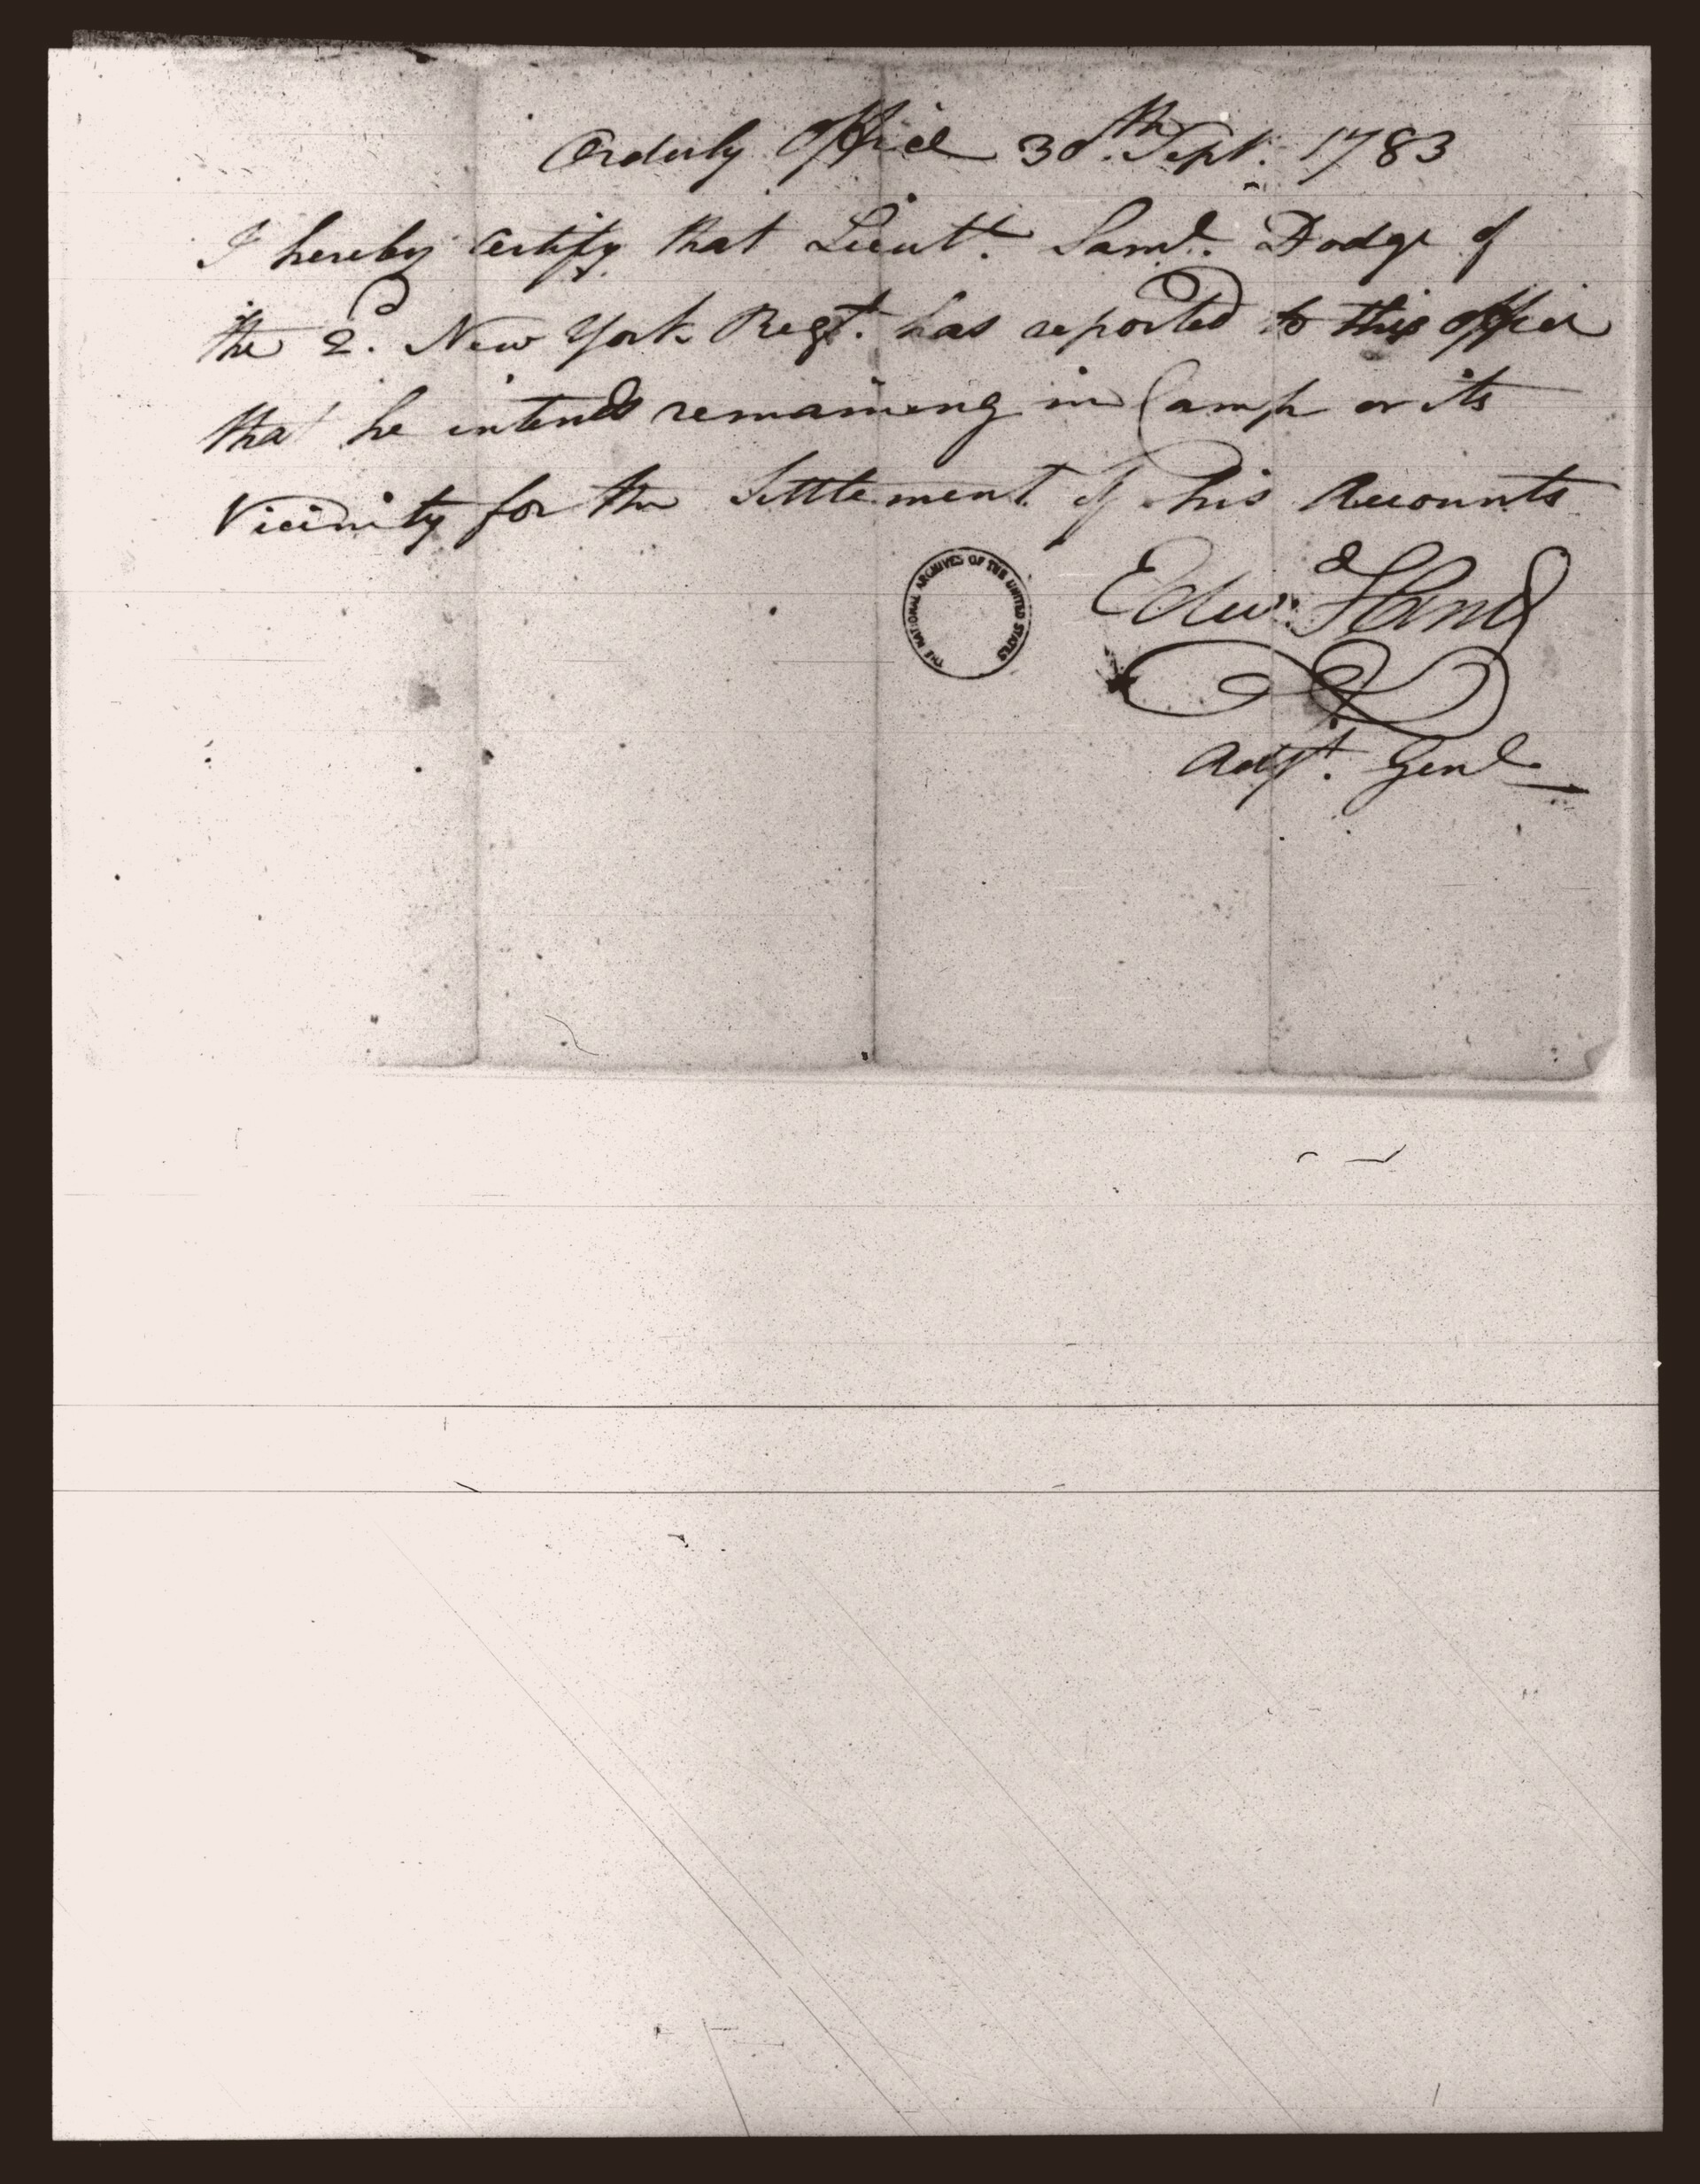 Orderly Office 30th. Sept. 1783
I hereby Certify that Lieutt. Saml. Dodge of
the 2d. New York Regt. has reported to this office
that he intends remaining in Camp or its
Vicinity for the Settlement of his Accounts
THE NATIONAL ARCHIVES OF THE UNITED STATES
Edwd. Hand
Adjt. Genl.